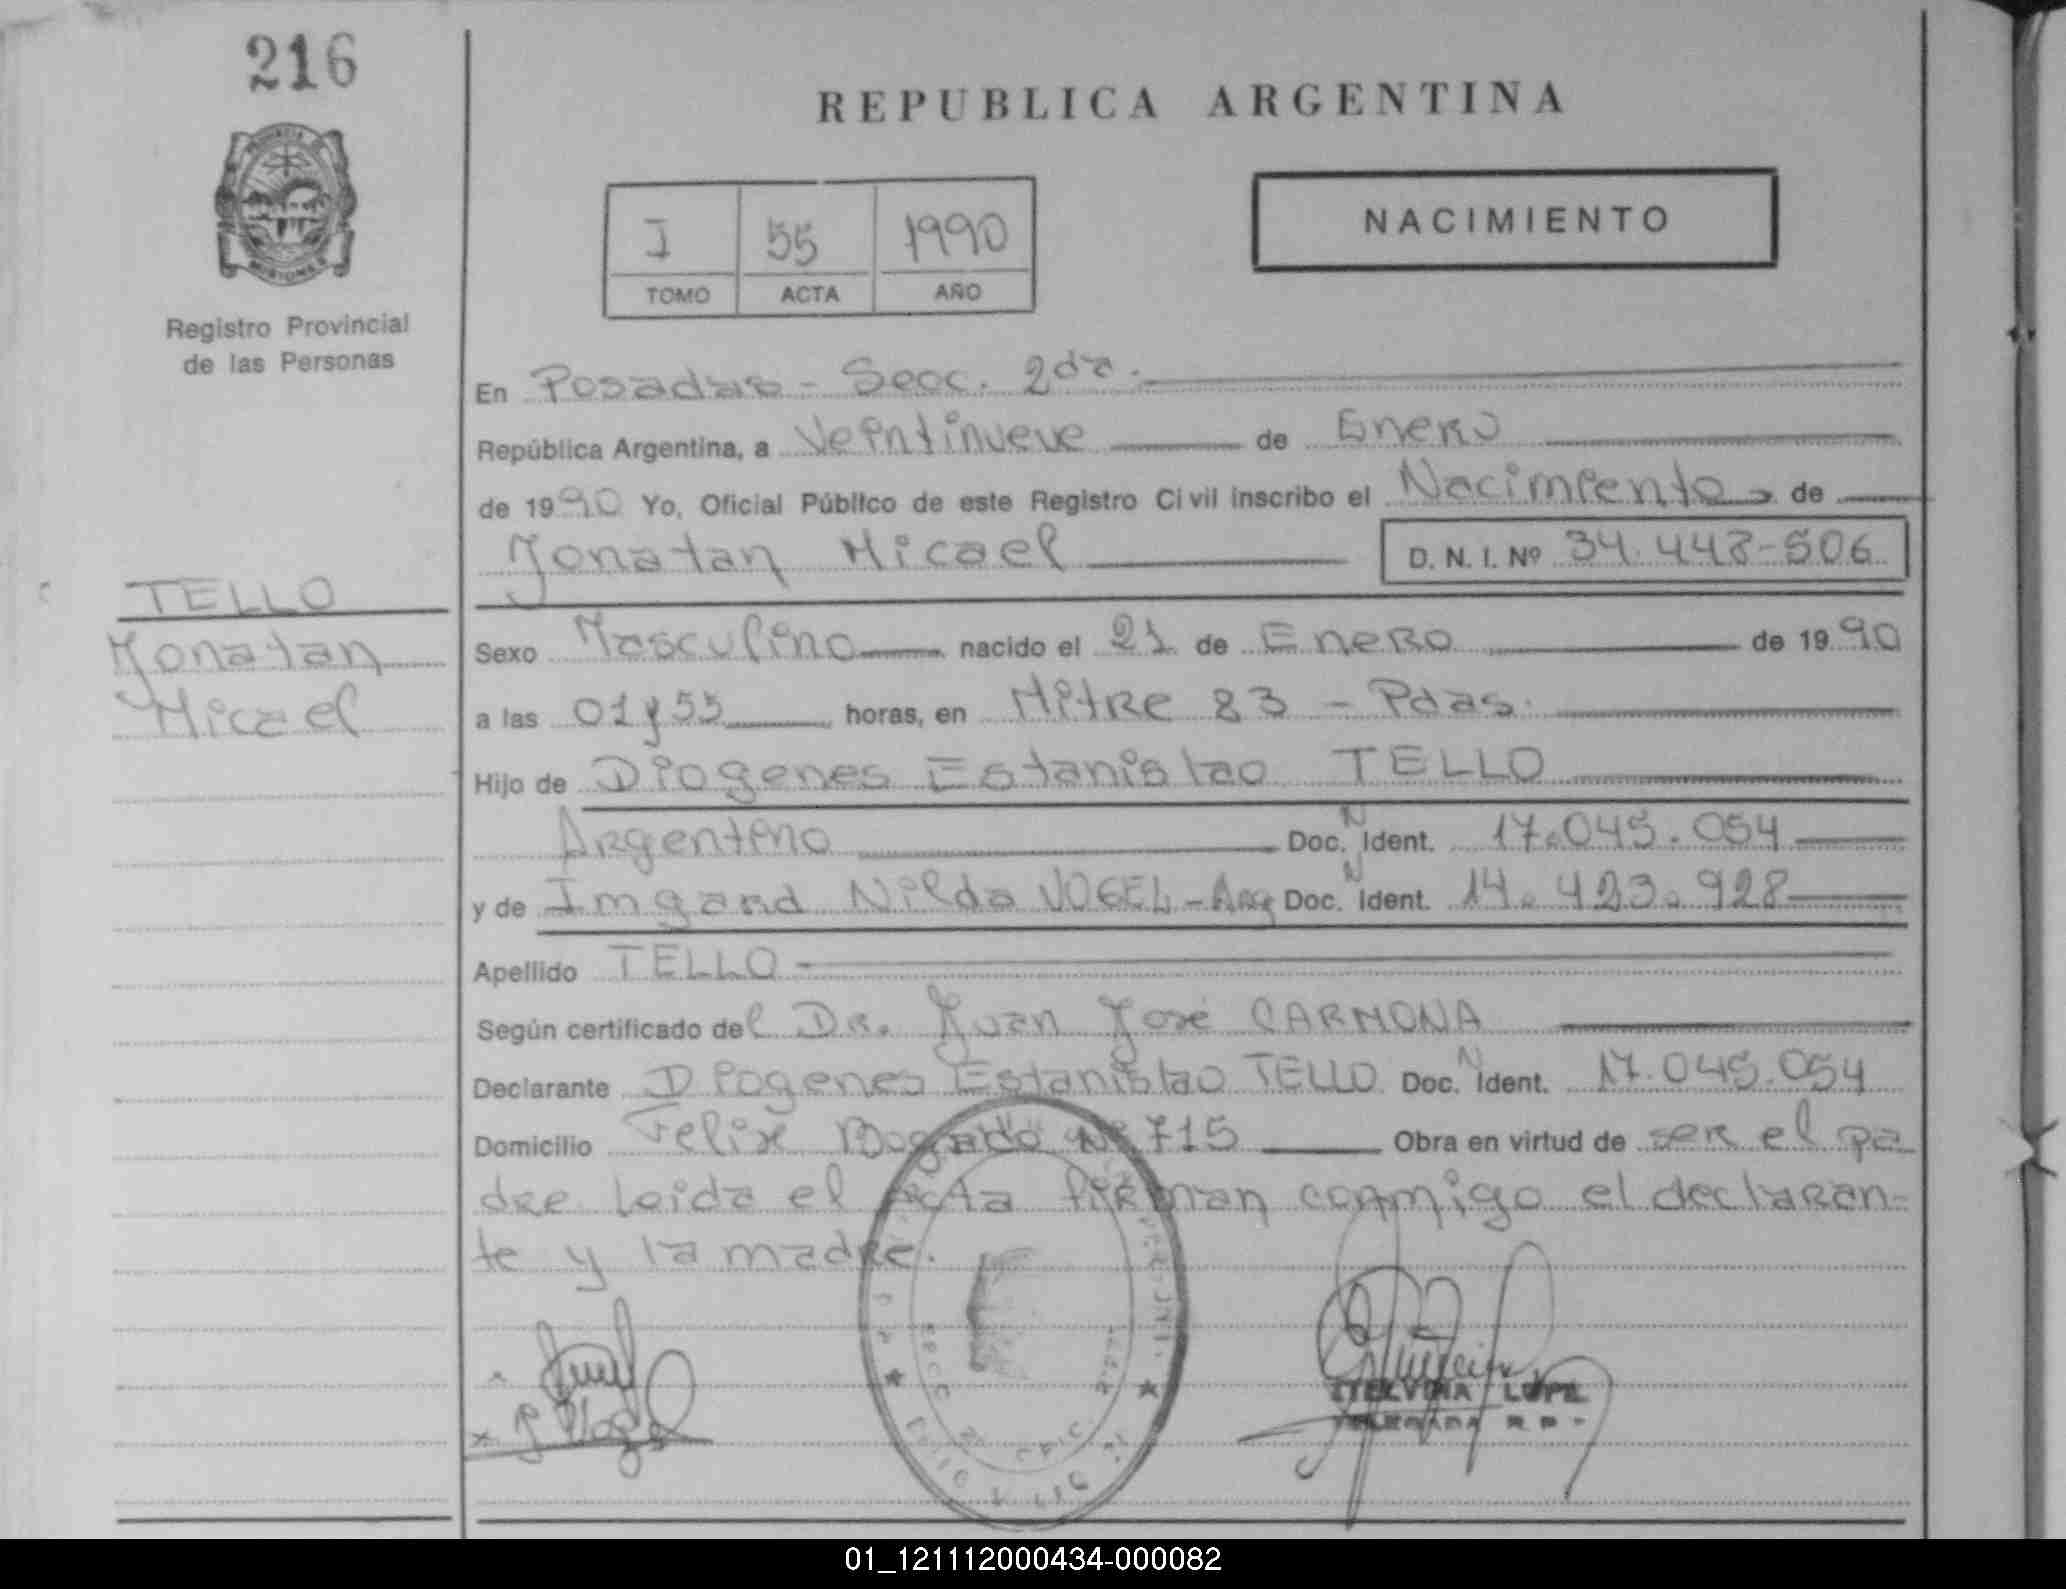 216
REPUBLICA ARGENTINA
I 55 1990
TOMO ACTA AÑO
NACIMIENTO
MISIONES
Registro Provincial
de las Personas
En Posadas - Secc. 2da.
República Argentina, a Veintinueve de Enero
de 1990 Yo, Oficial Público de este Registro Civil inscribo el Nacimiento de
Jonatan Micael D. N. I. Nº 34.448-506
TELLO
Jonatan
Micael
Sexo Masculino nacido el 21 de Enero de 1990
a las 01 y 55 horas, en Mitre 83 - Pdas.
Hijo de Diogenes Estanislao TELLO
Argentino Doc. N Ident. 17.045.054
y de Imgard Nilda VOGEL - Arg Doc. N Ident. 14.423.928
Apellido TELLO
Según certificado del Dr. Juan José CARMONA
Declarante Diogenes Estanislao TELLO Doc. N Ident. 17.045.054
Domicilio Felix Bogado Nº 715 Obra en virtud de ser el pa
dre leida el Acta firman conmigo el declaran-
te y la madre.
01_121112000434-000082